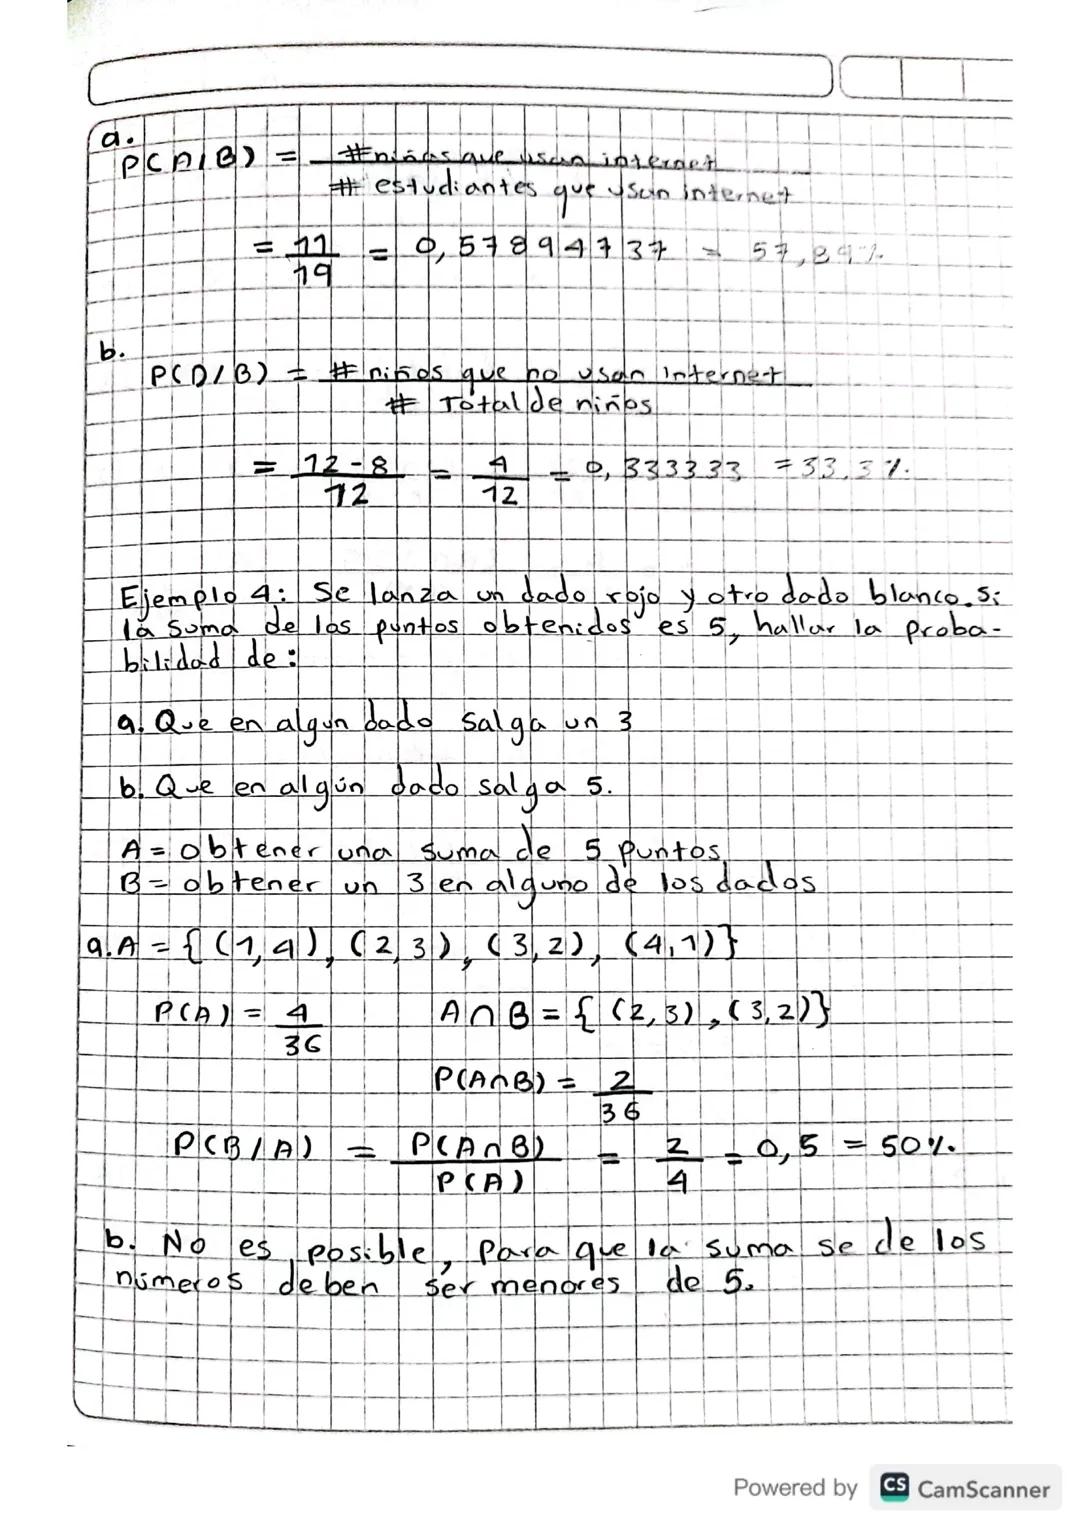 a.
P(A/B) = #niñas que usan internet
# estudiantes que usan internet
= 11 = 0,57894737 = 57,89%
19
b.
P(D/B) = # niños que no usan internet
# Total de niños
= 12-8 = 4 = 0,333333 = 33,3%.
12 12
Ejemplo 4: Se lanza un dado rojo y otro dado blanco. Si
la suma de los puntos obtenidos es 5, hallar la proba-
bilidad de:
a. Que en algun dado salga un 3
b. Que en algún dado salga 5.
A = obtener una suma de 5 puntos
B = obtener un 3 en alguno de los dados
a. A = { (1,4), (2,3), (3,2), (4,1)}
P(A) = 4 A∩B = { (2,3), (3,2)}
36
P(A∩B) = 2
36
P(B/A) = P(A∩B) = 2 = 0,5 = 50%.
P(A) 4
b. No es posible, para que la suma se de los
números deben ser menores de 5.
Powered by CS CamScanner